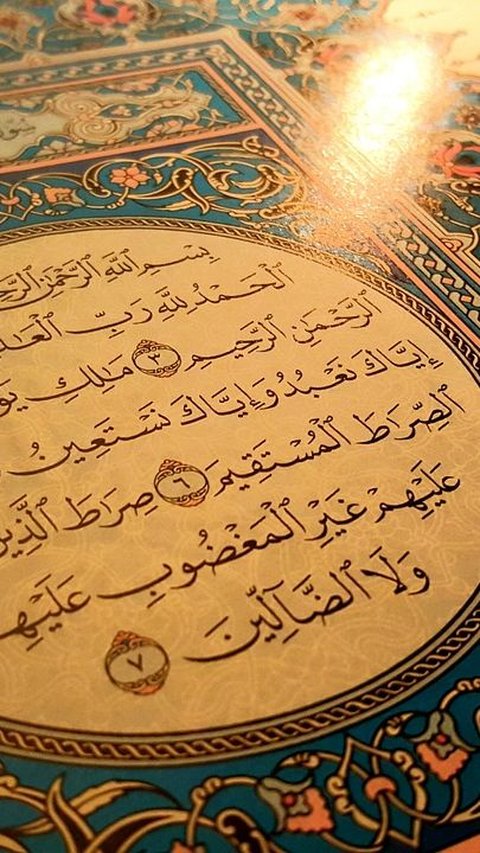 بِسْمِ ٱللَّهِ ٱلرَّحْمَٰنِ
ٱلْحَمْدُ لِلَّهِ رَبِّ
ٱلرَّحْمَٰنِ ٱلرَّحِيمِ ٣ مَٰلِكِ
إِيَّاكَ نَعْبُدُ وَإِيَّاكَ نَسْتَعِينُ
ٱلصِّرَاطَ ٱلْمُسْتَقِيمَ ٦ صِرَاطَ ٱلَّذِينَ
عَلَيْهِمْ غَيْرِ ٱلْمَغْضُوبِ
وَلَا ٱلضَّآلِّينَ ٧